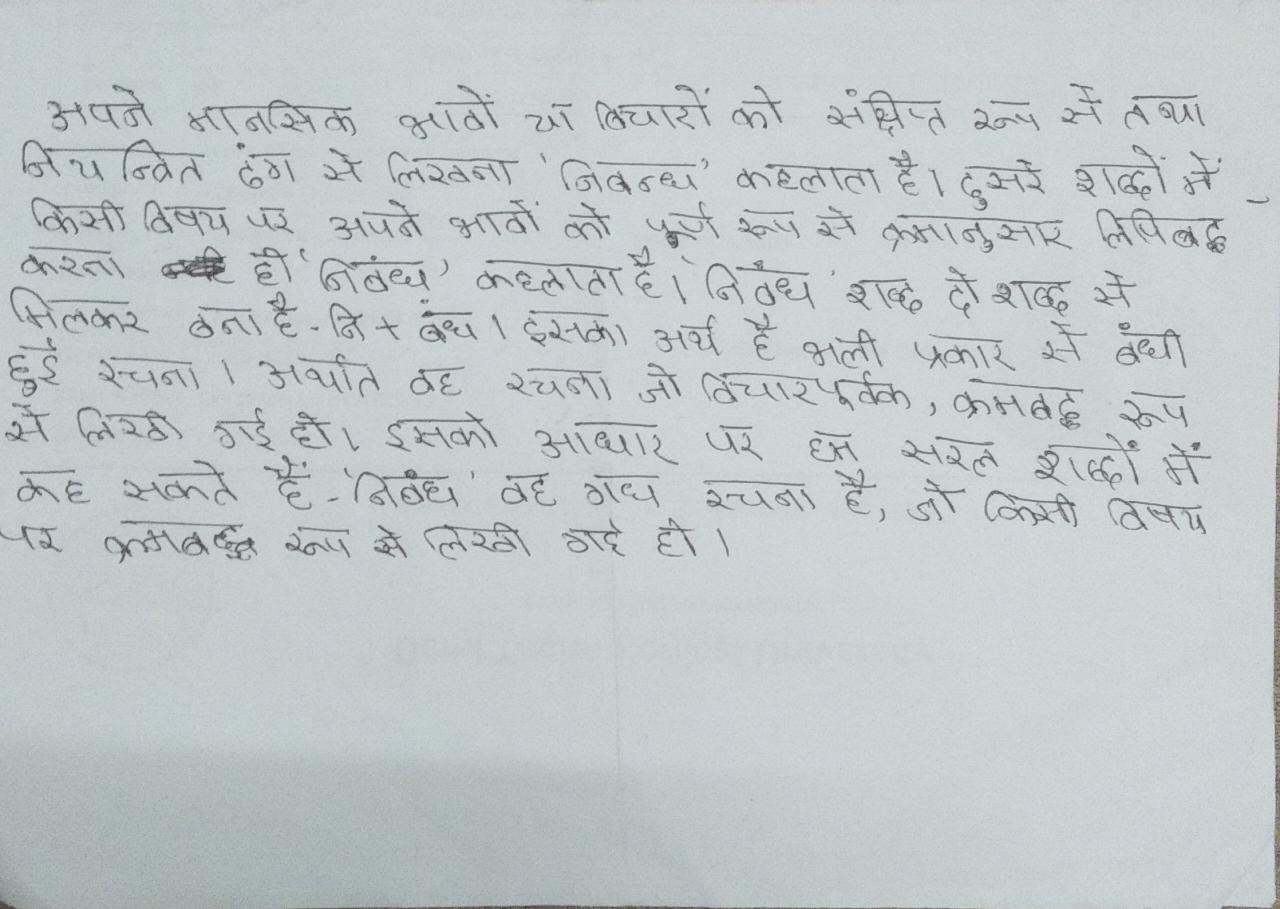 अपने मानसिक भावों या विचारों को संक्षिप्त रूप से तथा
नियन्त्रित ढंग से लिखना 'निबन्ध' कहलाता है। दुसरे शब्दों में
किसी विषय पर अपने भावों को पूर्ण रूप से क्रमानुसार लिपिबद्ध
करना ही 'निबंध' कहलाता है। 'निबंध' शब्द दो शब्द से
मिलकर बना है - नि + बंध। इसका अर्थ है भली प्रकार से बंधी
हुई रचना। अर्थात वह रचना जो विचारपूर्वक, क्रमबद्ध रूप
से लिखी गई हो। इसको आधार पर हम सरल शब्दों में
कह सकते हैं - 'निबंध' वह गध रचना है, जो किसी विषय
पर क्रमबद्ध रूप से लिखी गई हो।